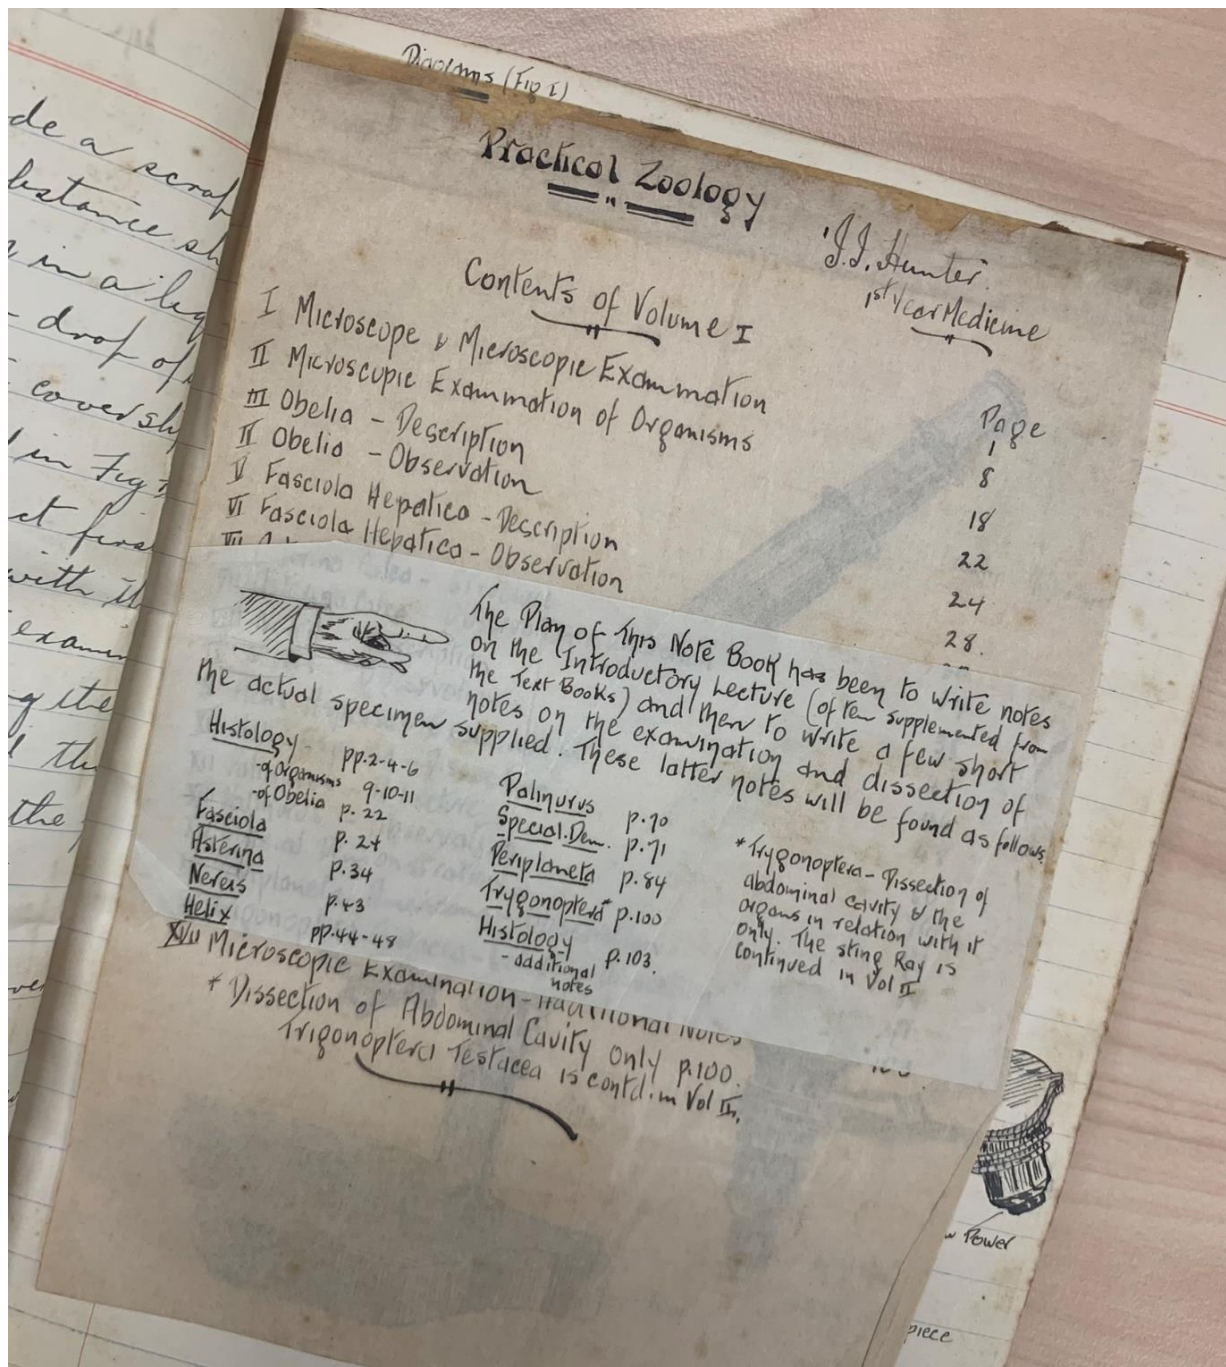 de a scrap
bstance sh
in a liq
drop of
coversli
in Fig
ct first
with it
examin
g the
the
the
Diagrams (Fig I)
Practical Zoology
J.J. Hunter.
1st Year Medicine
Contents of Volume I
Page
I Microscope & Microscopic Examination 1
II Microscopic Examination of Organisms 8
III Obelia - Description 18
IV Obelia - Observation 22
V Fasciola Hepatica - Description 24
VI Fasciola Hepatica - Observation 28.
The Plan of This Note Book has been to write notes
on the Introductory Lecture (often supplemented from
the Text Books) and then to write a few short
notes on the examination and dissection of
the actual specimen supplied. These latter notes will be found as follows.
Histology pp.2-4-6
-of Organisms 9-10-11
-of Obelia p. 22
Fasciola p. 24
Asterina p.34
Nereis p.43
Helix pp.44-48
Palinurus p.70
Special.Dem. p.71
Periplaneta p.84
Trygonoptera* p.100
Histology p.103.
- additional
notes
* Trygonoptera - Dissection of
abdominal cavity & the
organs in relation with it
only. The sting Ray is
continued in Vol II
XVII Microscopic Examination - Additional Notes
* Dissection of Abdominal Cavity only p.100.
Trigonoptera Testacea is contd. in Vol II.
Power
piece